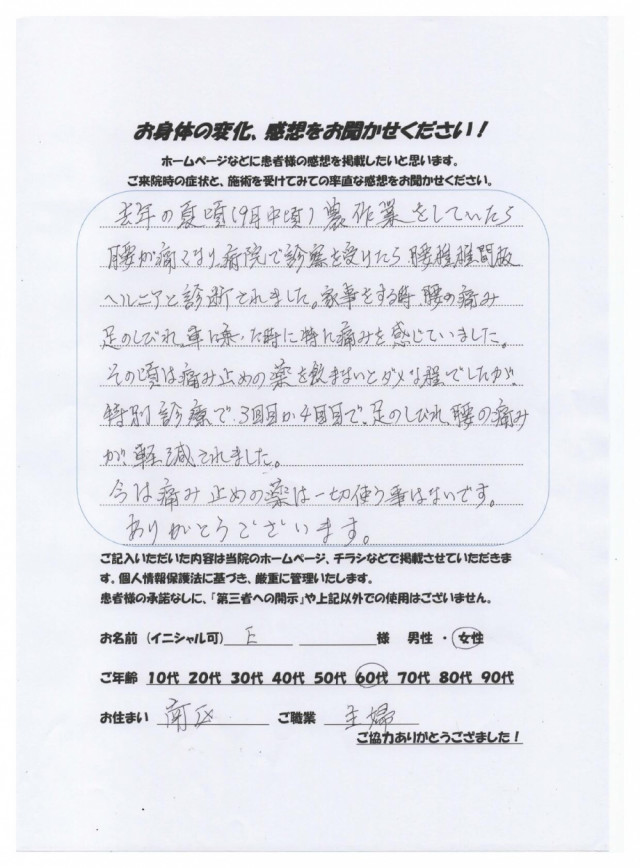 お身体の変化、感想をお聞かせください！
ホームページなどに患者様の感想を掲載したいと思います。
ご来院時の症状と、施術を受けてみての率直な感想をお聞かせください。
去年の夏頃(9月中頃)農作業をしていたら
腰が痛くなり、病院で診察を受けたら腰椎椎間板
ヘルニアと診断されました。家事をする時、腰の痛み
足のしびれ、車に乗った時に特に痛みを感じていました。
その頃は痛み止めの薬を飲まないとダメな程でしたが、
特別診療で、3回目か4回目で、足のしびれ、腰の痛み
が、軽減されました。
今は痛み止めの薬は一切使う事はないです。
ありがとうございます。
ご記入いただいた内容は当院のホームページ、チラシなどで掲載させていただきま
す。個人情報保護法に基づき、厳重に管理いたします。
患者様の承諾なしに、「第三者への開示」や上記以外での使用はございません。
お名前（イニシャル可） E 様 男性・女性
ご年齢 10代 20代 30代 40代 50代 60代 70代 80代 90代
お住まい 南区 ご職業 主婦
ご協力ありがとうござました！